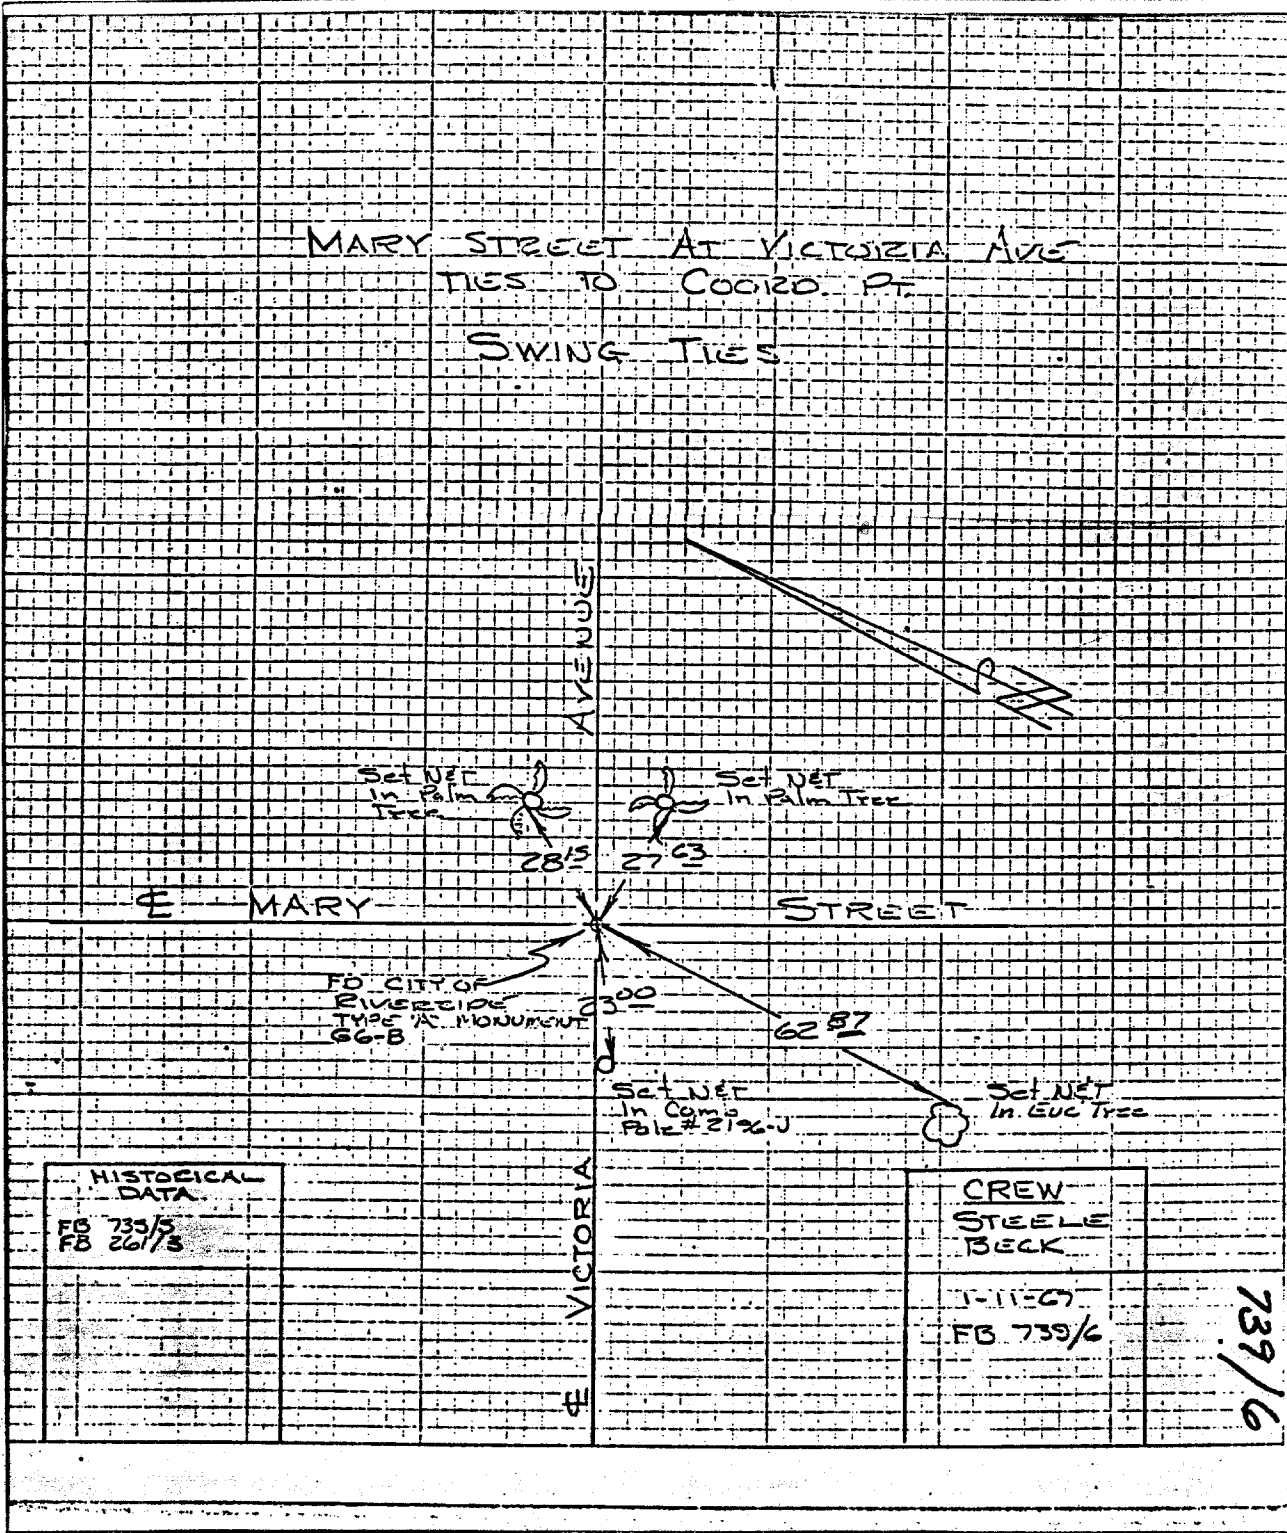 MARY STREET AT VICTORIA AVE
TIES TO COORD. PT.
SWING TIES
AVENUE
Set N&T
In Palm
Tree
Set N&T
In Palm Tree
28 15
27 63
℄ MARY
STREET
FD CITY OF
RIVERSIDE
TYPE "A" MONUMENT
66-B
23 00
62 87
Set N&T
In Comp
Pole # 2196-J
Set N&T
In Euc Tree
HISTORICAL
DATA
FB 735/5
FB 261/3
℄ VICTORIA
CREW
STEELE
BECK
1-11-67
FB 739/6
739/6